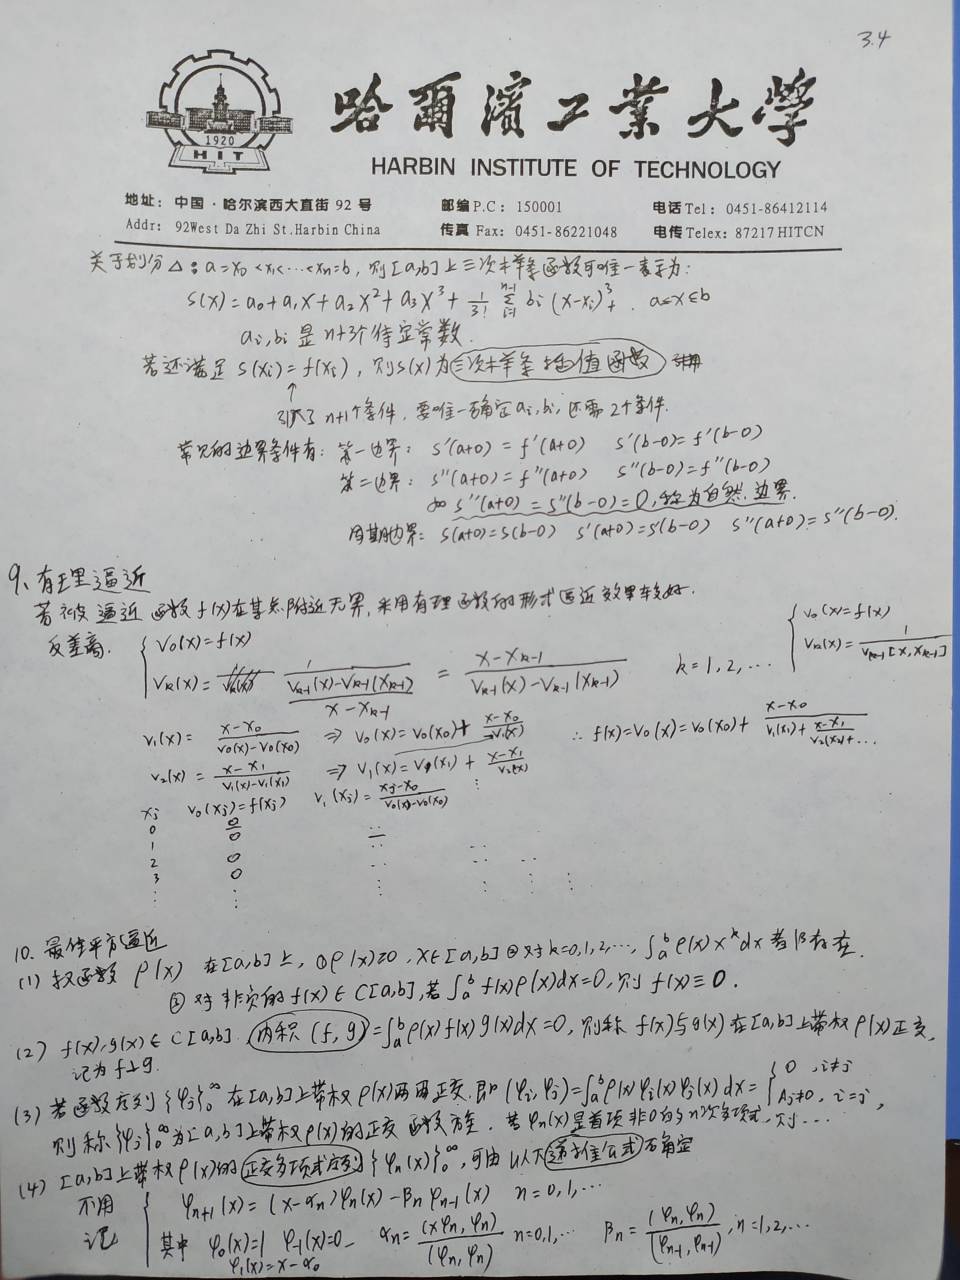 3.4
哈爾濱工業大學
1920
HIT
HARBIN INSTITUTE OF TECHNOLOGY
地址：中国·哈尔滨西大直街 92 号 邮编 P.C: 150001 电话 Tel: 0451-86412114
Addr: 92West Da Zhi St.Harbin China 传真 Fax: 0451-86221048 电传 Telex: 87217 HITCN
关于划分△: a=x₀<x₁<…<xn=b, 则[a,b]上三次样条函数可唯一表示为:
S(x)=a₀+a₁x+a₂x²+a₃x³+ 1/3! Σ(i=1 → n-1) bi (x-xi)³₊ . a≤x≤b
ai, bi 是 n+3个待定常数.
若还满足 S(xi)=f(xi), 则S(x)为三次样条插值函数
↑
引入了 n+1个条件, 要唯一确定ai, bi, 还需2个条件.
常见的边界条件有: 第一边界: S'(a+0)=f'(a+0) S'(b-0)=f'(b-0)
第二边界: S''(a+0)=f''(a+0) S''(b-0)=f''(b-0)
如 S''(a+0)=S''(b-0)=0, 称为自然边界.
周期边界: S(a+0)=S(b-0) S'(a+0)=S'(b-0) S''(a+0)=S''(b-0).
9、有理逼近
若被逼近函数f(x)在某点附近无界, 采用有理函数的形式逼近效果较好.
反差商. { V₀(x)=f(x)
Vk(x)= 1/((Vk-1(x)-Vk-1(xk-1))/(x-xk-1)) = (x-xk-1)/(Vk-1(x)-Vk-1(xk-1)) k=1,2,…
{ V₀(x)=f(x)
Vk(x)= 1/Vk-1[x,xk-1]
V₁(x)= (x-x₀)/(V₀(x)-V₀(x₀)) ⇒ V₀(x)=V₀(x₀)+ (x-x₀)/V₁(x) ∴ f(x)=V₀(x)=V₀(x₀)+ (x-x₀)/(V₁(x₁)+ (x-x₁)/(V₂(x₂)+…
V₂(x)= (x-x₁)/(V₁(x)-V₁(x₁)) ⇒ V₁(x)=V₁(x₁)+ (x-x₁)/V₂(x)
xj V₀(xj)=f(xj) V₁(xj)= (xj-x₀)/(V₀(x)-V₀(x₀))
0 0
1 0
2 0
3 0
10. 最佳平方逼近
(1) 权函数 ρ(x) 在[a,b]上, ①ρ(x)≥0, x∈[a,b] ②对k=0,1,2,…, ∫ₐᵇ ρ(x)xᵏdx 都存在.
③ 对非负的f(x)∈C[a,b], 若∫ₐᵇ f(x)ρ(x)dx=0, 则 f(x)≡0.
(2) f(x), g(x)∈C[a,b]. 内积 (f,g)=∫ₐᵇρ(x)f(x)g(x)dx=0, 则称 f(x)与g(x)在[a,b]上带权ρ(x)正交,
记为f⊥g.
(3) 若函数序列{φj}₀^∞在[a,b]上带权ρ(x)两两正交, 即(φi,φj)=∫ₐᵇρ(x)φi(x)φj(x)dx= { 0, i≠j
Aj≠0, i=j,
则称{φj}₀^∞为[a,b]上带权ρ(x)的正交函数族. 若φn(x)是首项非0的n次多项式, 则…
(4) [a,b]上带权ρ(x)的正交多项式序列{φn(x)}₀^∞, 可由以下递推公式确定
不用 { φn+1(x)=(x-αn)φn(x)-βnφn-1(x) n=0,1,…
记 其中 φ₀(x)=1 φ₋₁(x)=0 αn= (xφn,φn)/(φn,φn) n=0,1,… βn= (φn,φn)/(φn-1,φn-1), n=1,2,…
φ₁(x)=x-α₀